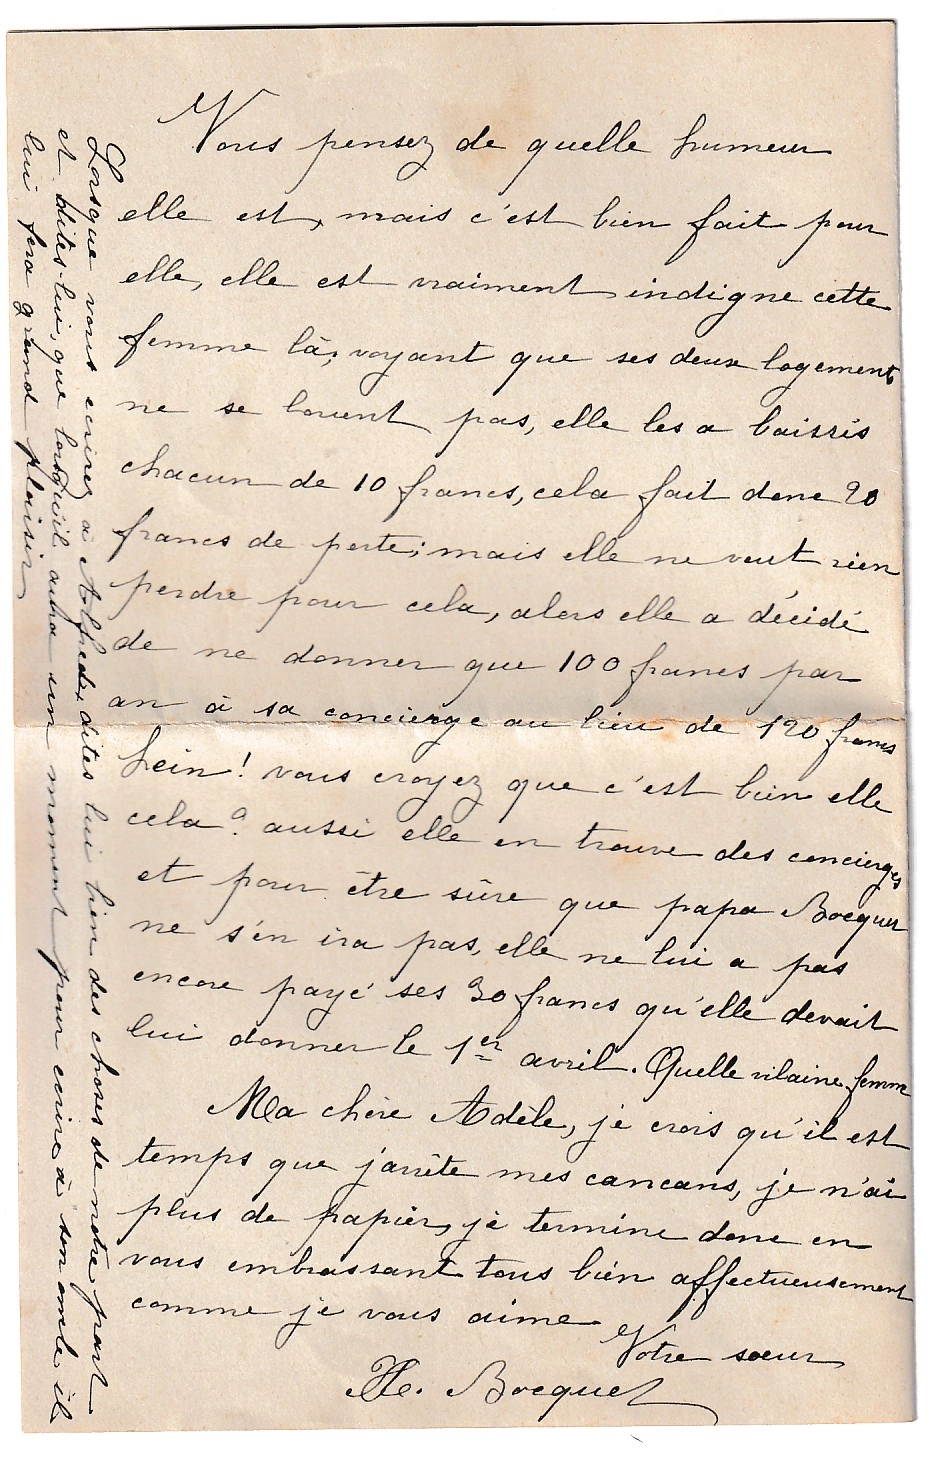 Vous pensez de quelle humeur
elle est, mais c'est bien fait pour
elle, elle est vraiment indigne cette
femme là, voyant que ses deux logements
ne se louent pas, elle les a baissés
chacun de 10 francs, cela fait donc 20
francs de perte; mais elle ne veut rien
perdre pour cela, alors elle a décidé
de ne donner que 100 francs par
an à sa concierge au lieu de 120 francs
hein! vous croyez que c'est bien elle
cela? aussi elle en trouve des concierges
et pour être sûre que papa Bocquet
ne s'en ira pas, elle ne lui a pas
encore payé ses 30 francs qu'elle devait
lui donner le 1er avril. Quelle vilaine femme
Ma chère Adèle, je crois qu'il est
temps que j'arrête mes cancans, je n'ai
plus de papier, je termine donc en
vous embrassant tous bien affectueusement
comme je vous aime.
Votre sœur
H. Bocquet
Lorsque vous ecrirez à Alfred, dites lui bien des choses de notre part
et dites-lui, que lorsqu'il aura un moment pour ecrire à son oncle, il
lui fera grand plaisir